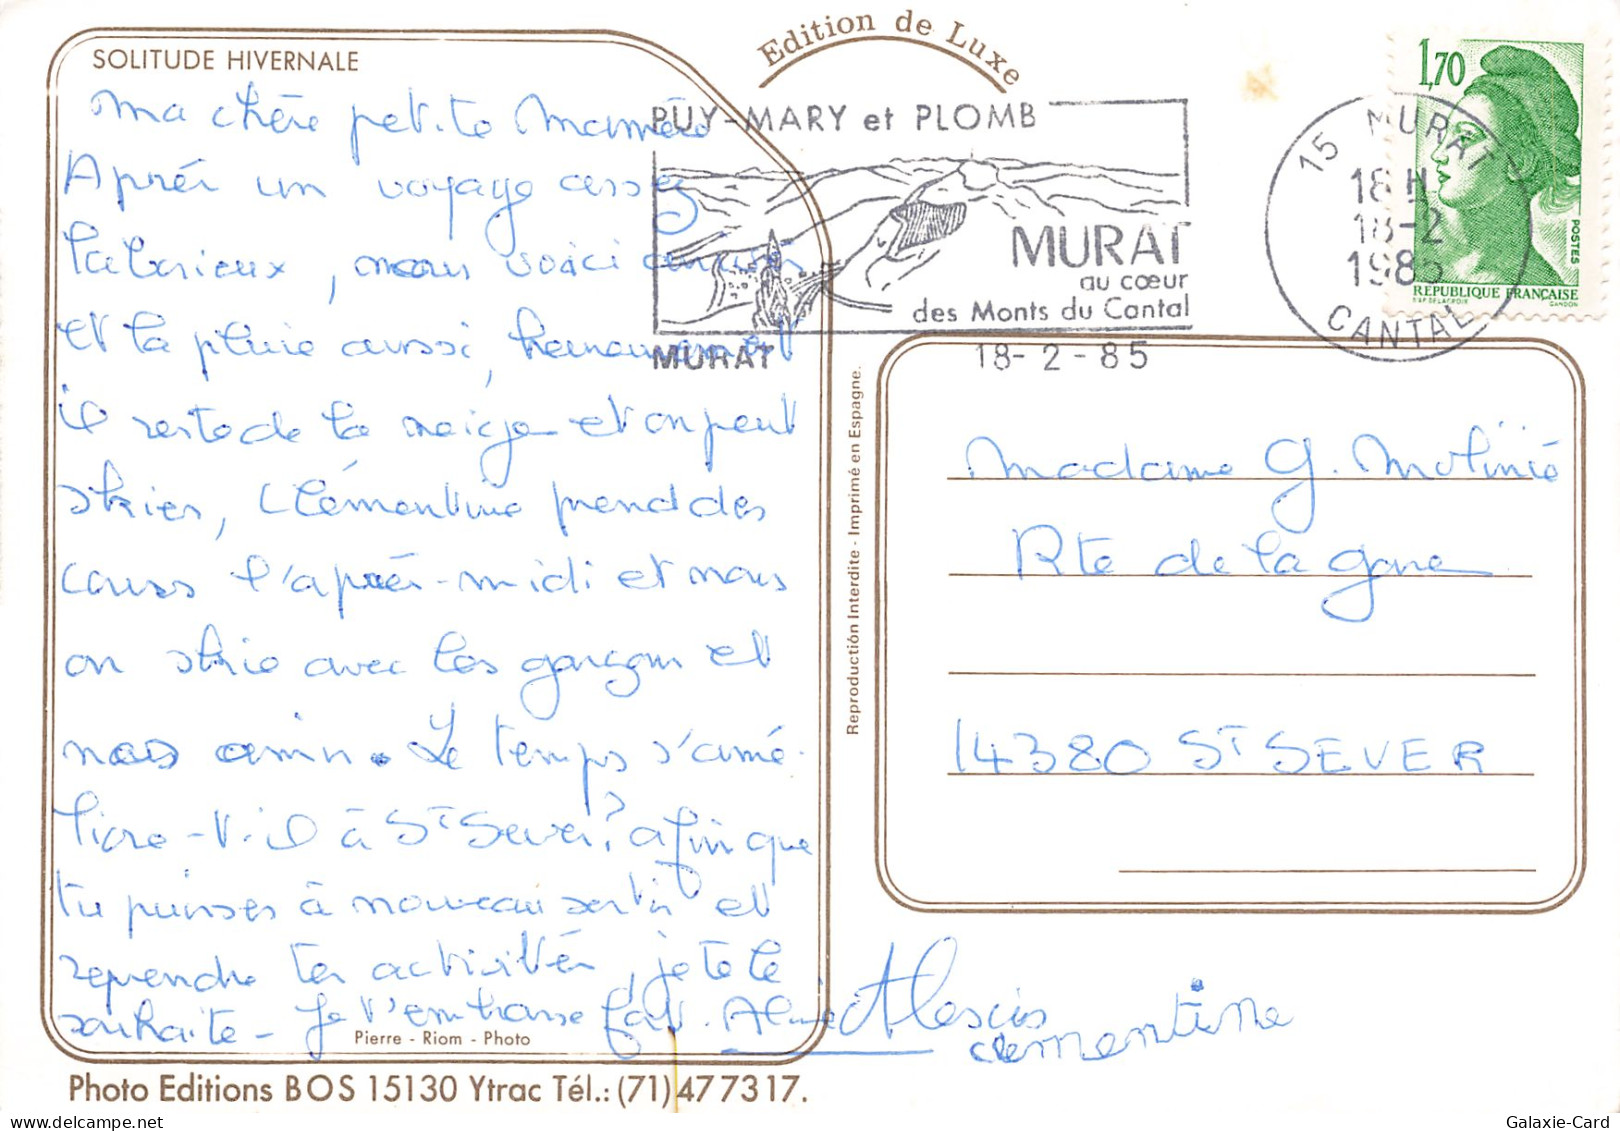 SOLITUDE HIVERNALE
Edition de Luxe
ma chère petite Mamée
Après un voyage assez
laborieux, nous voici arrivés
et la pluie aussi, heureusement
il reste de la neige et on peut
skier, Clémentine prend des
cours l'après-midi et nous
on skie avec les garçons et
nos amis. Le temps s'amé-
liore-t-il à St Sever? afin que
tu puisses à nouveau sortir et
reprendre tes activités, je te le
souhaite - Je t'embrasse fort. Aline Alexis
clementine
Pierre - Riom - Photo
Photo Editions BOS 15130 Ytrac Tél.: (71) 47 73 17.
PUY-MARY et PLOMB
MURAT
au cœur
des Monts du Cantal
MURAT
18-2-85
15 MURAT
18 H
18-2
1985
CANTAL
1,70
POSTES
REPUBLIQUE FRANÇAISE
D'AP DELACROIX
GANDON
Reproduction Interdite - Imprimé en Espagne.
Madame G. Molinié
Rte de la gare
14380 ST SEVER
Galaxie-Card